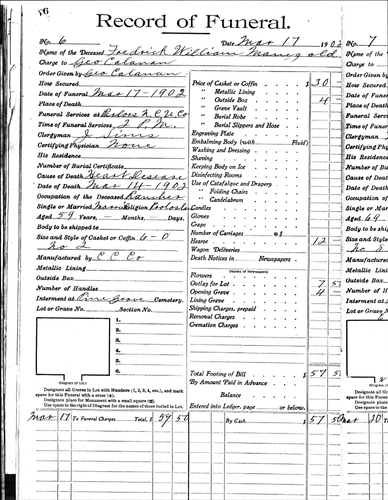 16
Record of Funeral.
No. 6 Date, Mar 17 1902
Name of the Deceased Fredrick William Manigold
Charge to Geo Calanan
Order Given by Geo Calanan
How Secured
Date of Funeral Mar 17 - 1902
Place of Death
Funeral Services at Parlors N. C. U. Co
Time of Funeral Services 2 P. M.
Clergyman J Sims
Certifying Physician None
His Residence
Number of Burial Certificate
Cause of Death Heart Disease
Date of Death Mar 14 - 1902
Occupation of the Deceased Rancher
Single or Married Religion
Aged 59 Years, - Months, - Days.
Body to be shipped to
Size and Style of Casket or Coffin 6-0
No 2
Manufactured by C C Co
Metallic Lining
Outside Box
Number of Handles
Interment at Pine Grove Cemetery.
Lot or Grave No. Section No.
1.
2.
3.
4.
5.
6.
(Diagram of Lot.)
Designate all Graves in Lot with Numbers (1, 2, 3, 4, etc.), and mark
space for this Funeral with a cross (+).
Designate place for Monument with a small square (□).
Use space to the right of Diagram for the names of those buried in Lot.
Price of Casket or Coffin $ 30 -
" Metallic Lining
" Outside Box 4 -
" Grave Vault
" Burial Robe
" Burial Slippers and Hose
Engraving Plate
Embalming Body (with Fluid)
Washing and Dressing
Shaving
Keeping Body on Ice
Disinfecting Rooms
Use of Catafalque and Drapery
" Folding Chairs
" Candelabrum
Candles
Gloves
Crape
Number of Carriages @ $
Hearse 12
Wagon Deliveries
Death Notices in Newspapers
(Names of Newspapers)
Flowers
Outlay for Lot 7 5
Opening Grave 4
Lining Grave
Shipping Charges, prepaid
Removal Charges
Cremation Charges
Total Footing of Bill $ 57 5
By Amount Paid in Advance
Balance
Entered into Ledger, page or below.
Mar 17 To Funeral Charges Total, $ 57 50 By Cash $ 57 50
No. 7
Name of
Charge to
Order Given
How Secured
Date of Funeral
Place of Death
Funeral Services
Time of Funeral
Clergyman
Certifying
His Residence
Number of
Cause of
Date of
Occupation
Single or
Aged
Body to be
Size and
Manufactured
Metallic
Outside
Number of
Interment
Lot or Grave
Mar 20